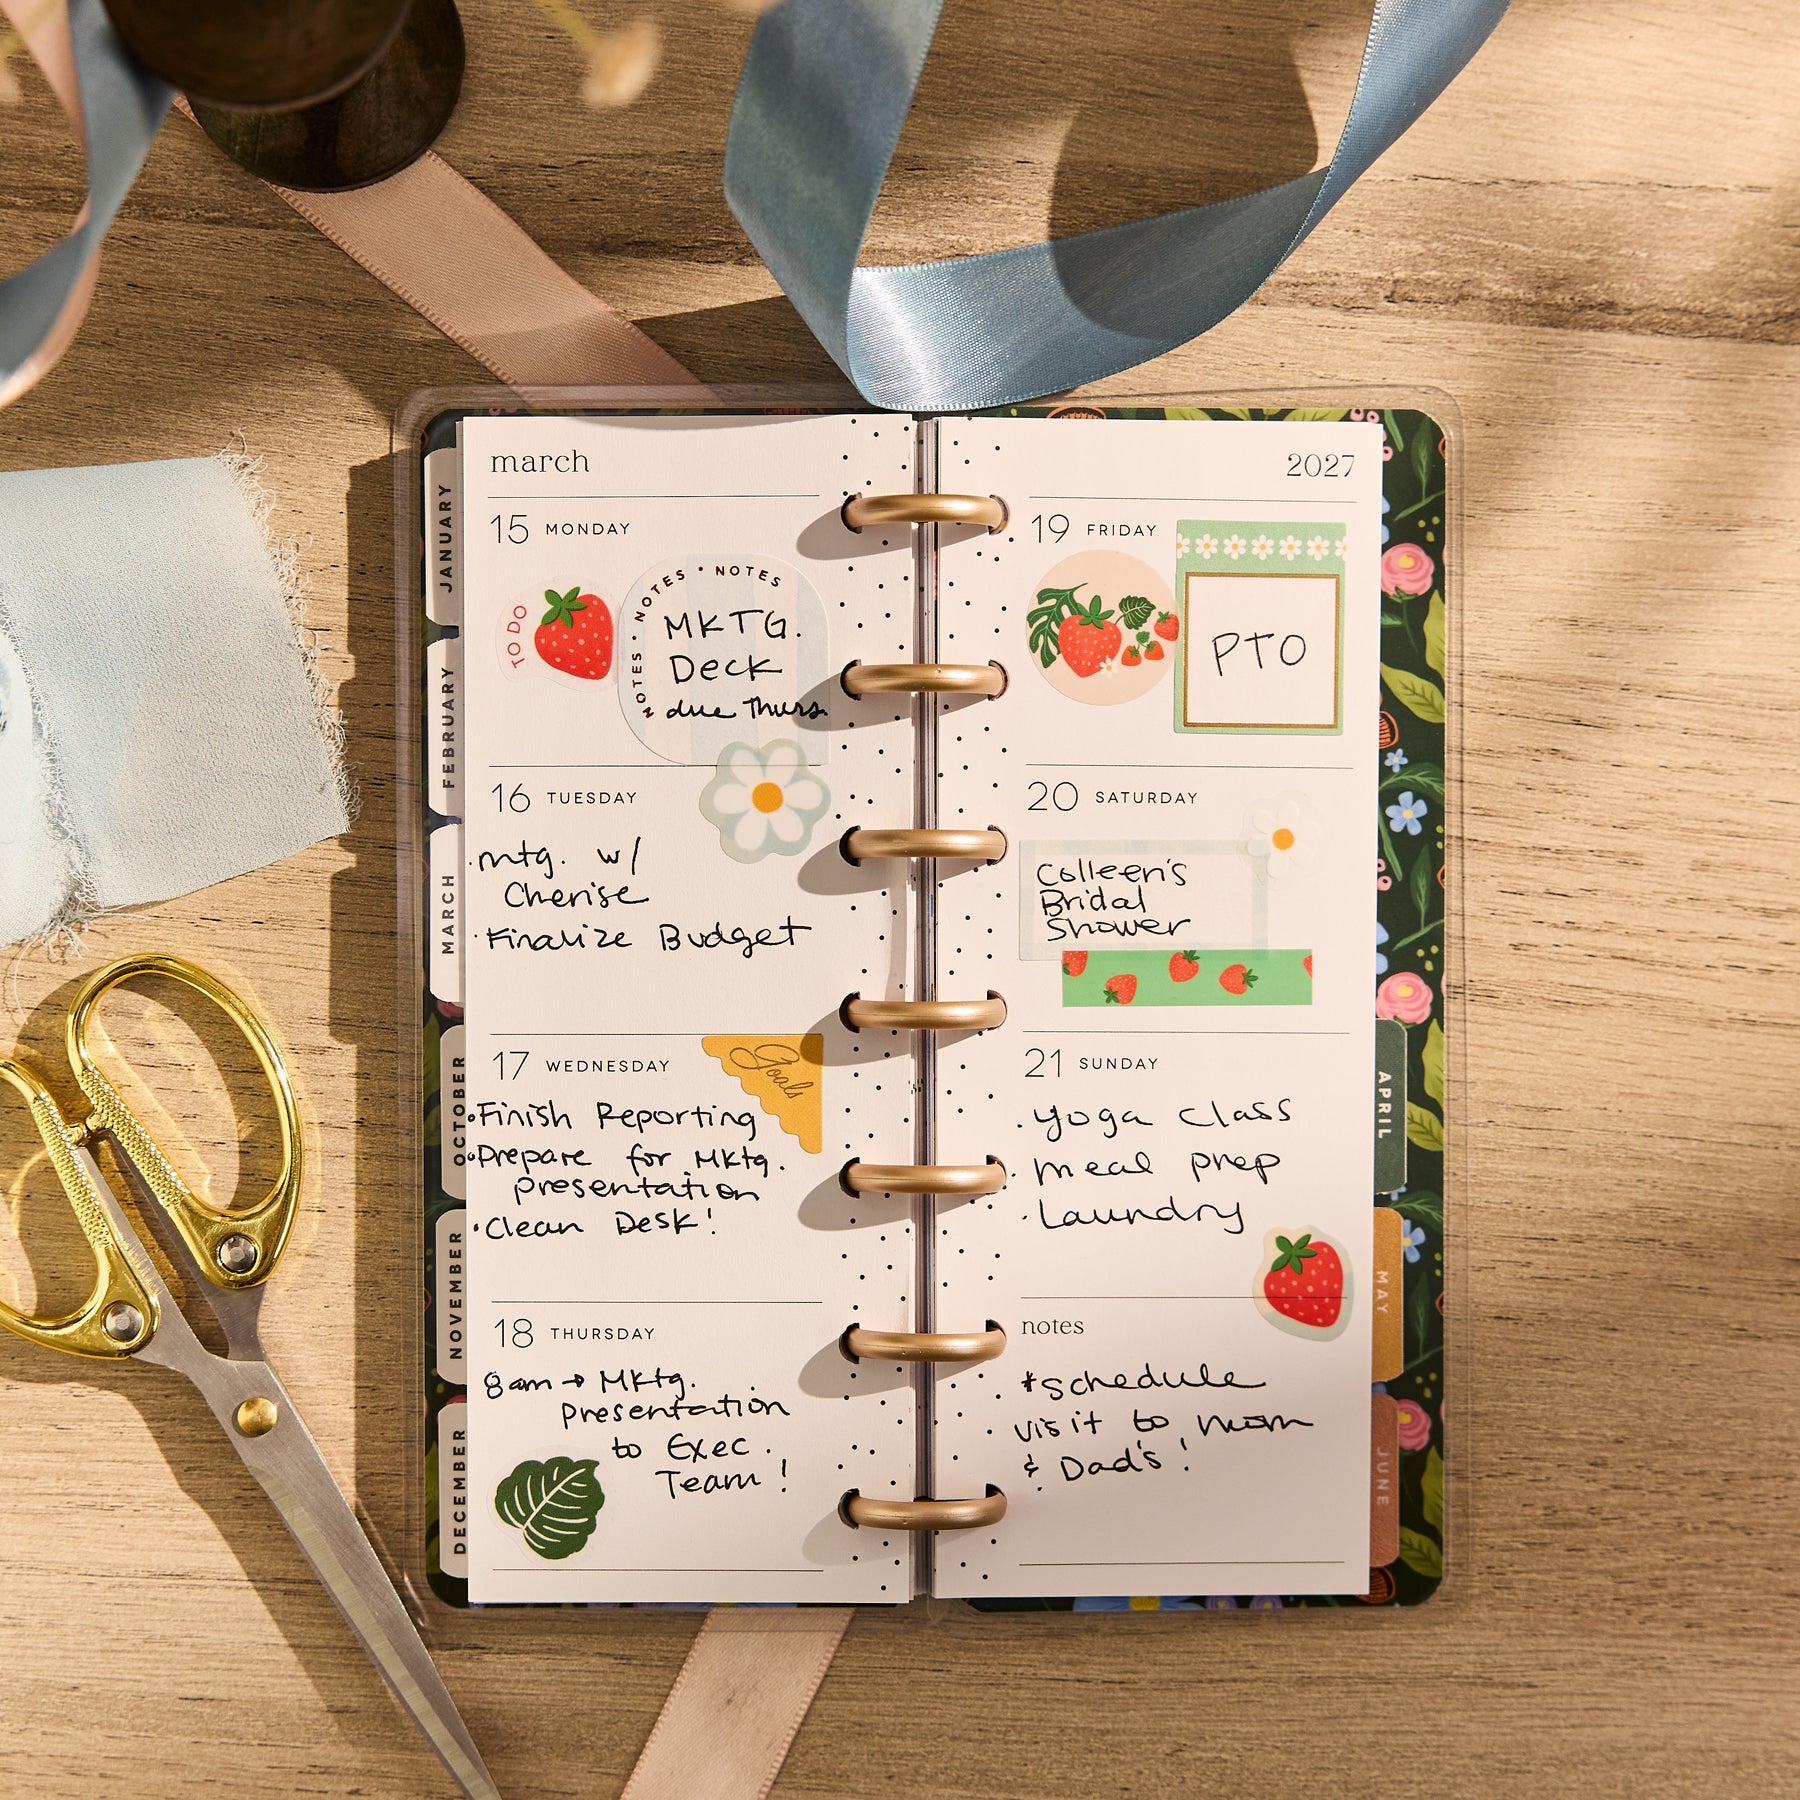 march
15 MONDAY
TO DO
NOTES • NOTES • NOTES
MKTG.
Deck
due Thurs.
16 TUESDAY
·mtg. w/
Cherise
·Finalize Budget
17 WEDNESDAY
Goals
•Finish Reporting
•Prepare for Mktg.
presentation
•Clean Desk!
18 THURSDAY
8am → Mktg.
Presentation
to Exec.
Team!
2027
19 FRIDAY
PTO
20 SATURDAY
Colleen's
Bridal
Shower
21 SUNDAY
·yoga class
·meal prep
·Laundry
notes
*schedule
visit to mom
& Dad's!
JANUARY
FEBRUARY
MARCH
OCTOBER
NOVEMBER
DECEMBER
APRIL
MAY
JUNE